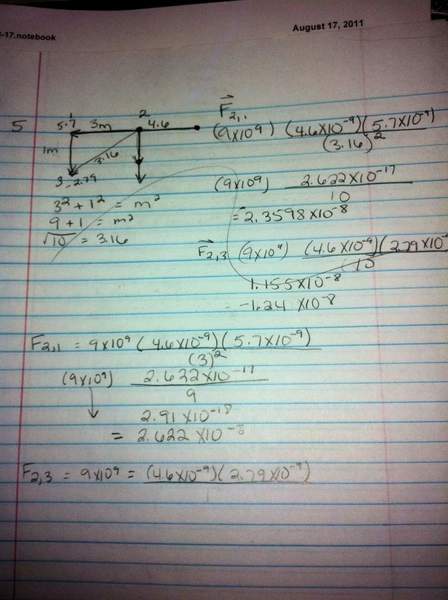 -17.notebook
August 17, 2011
5
1
2
5.7 3m 4.6
1m
3.16
3 -2.79
3² + 1² = m²
9 + 1 = m²
√10 = 3.16
F₂,₁
(9x10⁹) (4.6x10⁻⁹)(5.7x10⁻⁹)
(3.16)²
(9x10⁹) 2.622x10⁻¹⁷
10
= 2.3598x10⁻⁸
F₂,₃ (9x10⁹) (4.6x10⁻⁹)(2.79x10⁻
10
1.155x10⁻⁸
= -1.24 x10⁻⁸
F₂,₁ = 9x10⁹ (4.6x10⁻⁹)(5.7x10⁻⁹)
(3)²
(9x10⁹) 2.622x10⁻¹⁷
9
2.91x10⁻¹⁸
= 2.622 x10⁻⁸
F₂,₃ = 9x10⁹ = (4.6x10⁻⁹)(2.79x10⁻⁹)